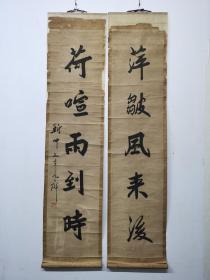 萍皺風来後
荷喧雨到時